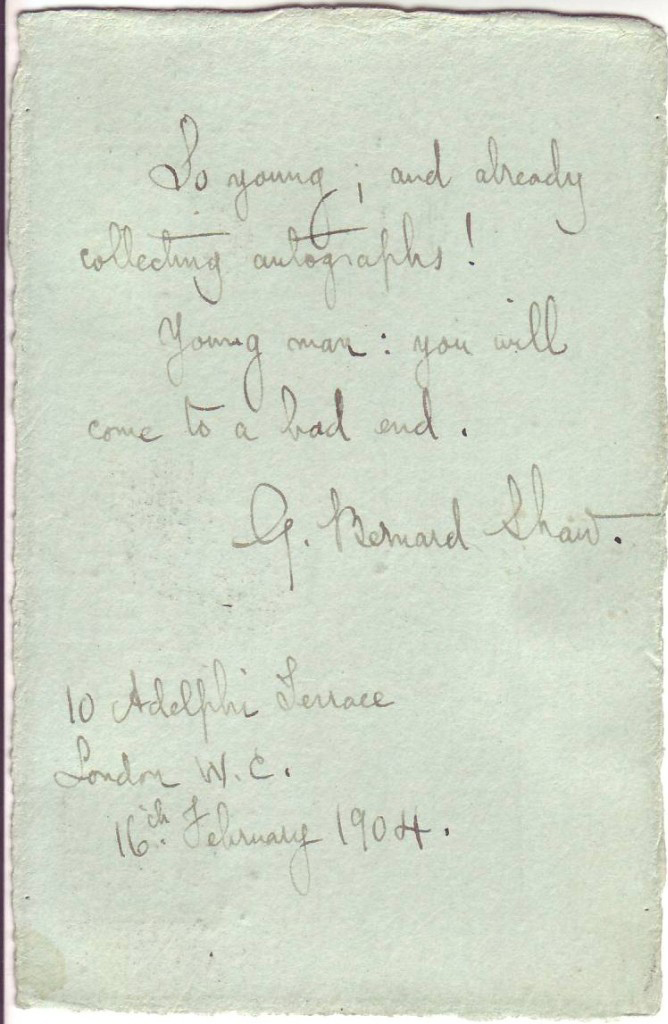 So young; and already
collecting autographs!
Young man: you will
come to a bad end.
G. Bernard Shaw.
10 Adelphi Terrace
London W.C.
16th. February 1904.